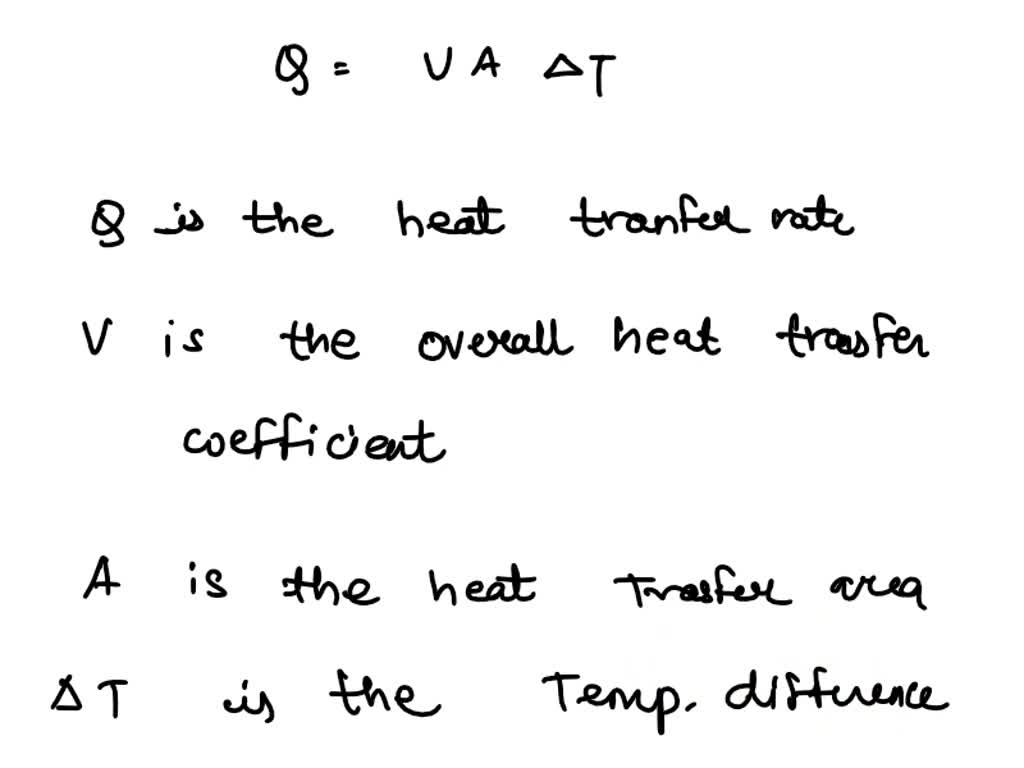 Q = U A ΔT
Q is the heat tranfer rate
V is the overall heat trasfer
coefficient
A is the heat Trasfer area
ΔT is the Temp. difference